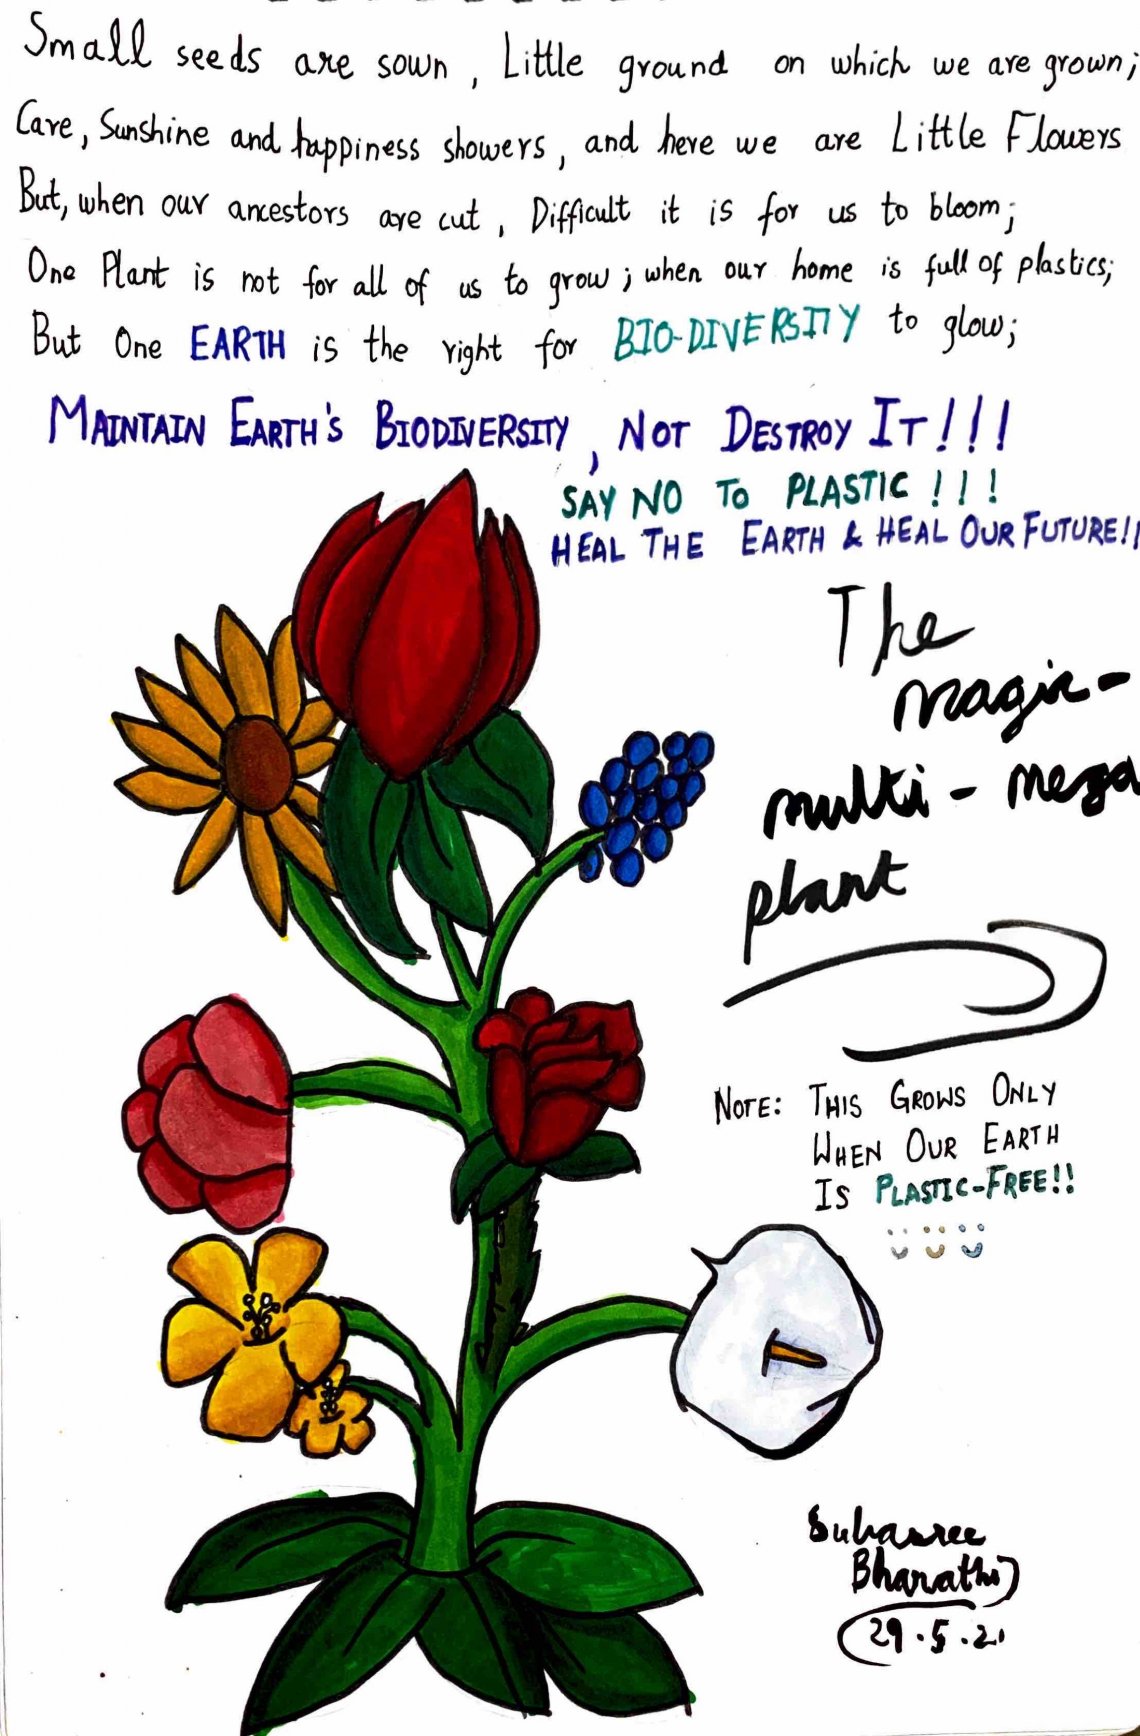 Small seeds are sown, Little ground on which we are grown;
Care, Sunshine and happiness showers, and here we are Little Flowers
But, when our ancestors are cut, Difficult it is for us to bloom;
One Plant is not for all of us to grow; when our home is full of plastics;
But One EARTH is the right for BIO-DIVERSITY to glow;
MAINTAIN EARTH'S BIODIVERSITY, NOT DESTROY IT!!!
SAY NO TO PLASTIC!!!
HEAL THE EARTH & HEAL OUR FUTURE!!
The
magic-
multi-mega
plant
NOTE: THIS GROWS ONLY
WHEN OUR EARTH
IS PLASTIC-FREE!!
Suhasree
Bharathi
29.5.21